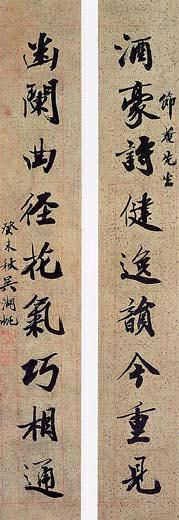 酒豪詩健逸韻今重見
節庵先生
幽蘭曲徑花氣巧相通
癸未秋吳湖帆